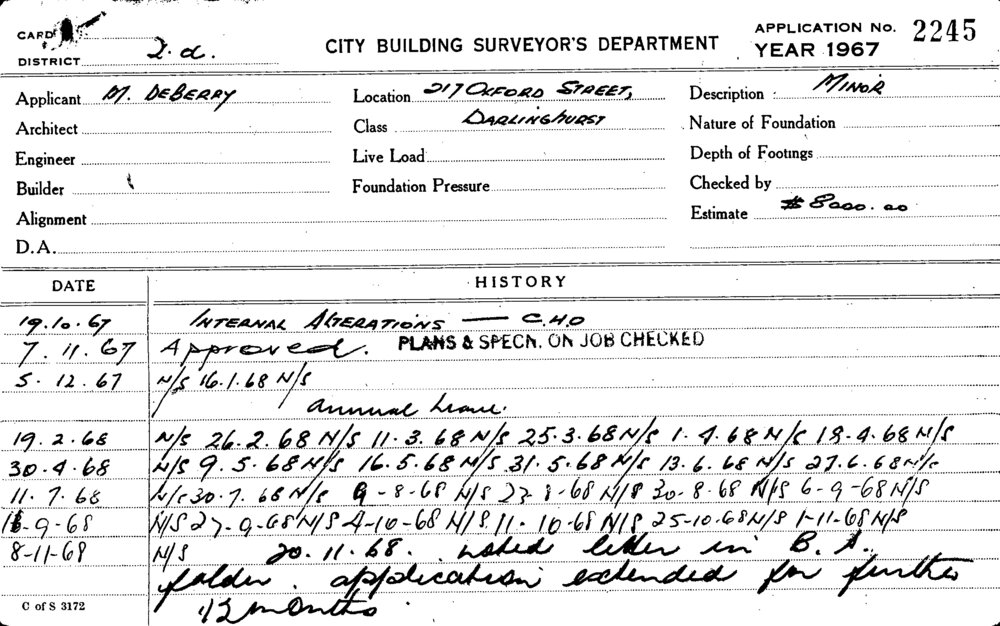 CARD
DISTRICT 2.d. CITY BUILDING SURVEYOR'S DEPARTMENT APPLICATION No. 2245
YEAR 1967
Applicant M. DEBERRY Location 217 OXFORD STREET, Description : MINOR
Architect Class DARLINGHURST Nature of Foundation
Engineer Live Load Depth of Footings
Builder Foundation Pressure Checked by
Alignment Estimate $8000.00
D.A.
DATE HISTORY
19.10.67 INTERNAL ALTERATIONS — C.H.O
7.11.67 Approved. PLANS & SPECN. ON JOB CHECKED
5.12.67 N/S 16.1.68 N/S
annual leave.
19.2.68 N/S 26.2.68 N/S 11.3.68 N/S 25.3.68 N/S 1.4.68 N/S 18.4.68 N/S
30.4.68 N/S 9.5.68 N/S 16.5.68 N/S 31.5.68 N/S 13.6.68 N/S 27.6.68 N/S
11.7.68 N/S 30.7.68 N/S 9-8-68 N/S 23-8-68 N/S 30-8-68 N/S 6-9-68 N/S
-9-68 N/S 27-9-68 N/S 4-10-68 N/S 11-10-68 N/S 25-10-68 N/S 1-11-68 N/S
8-11-68 N/S 20.11.68. noted letter in B.A.
folder. application extended for further
12 months.
C of S 3172